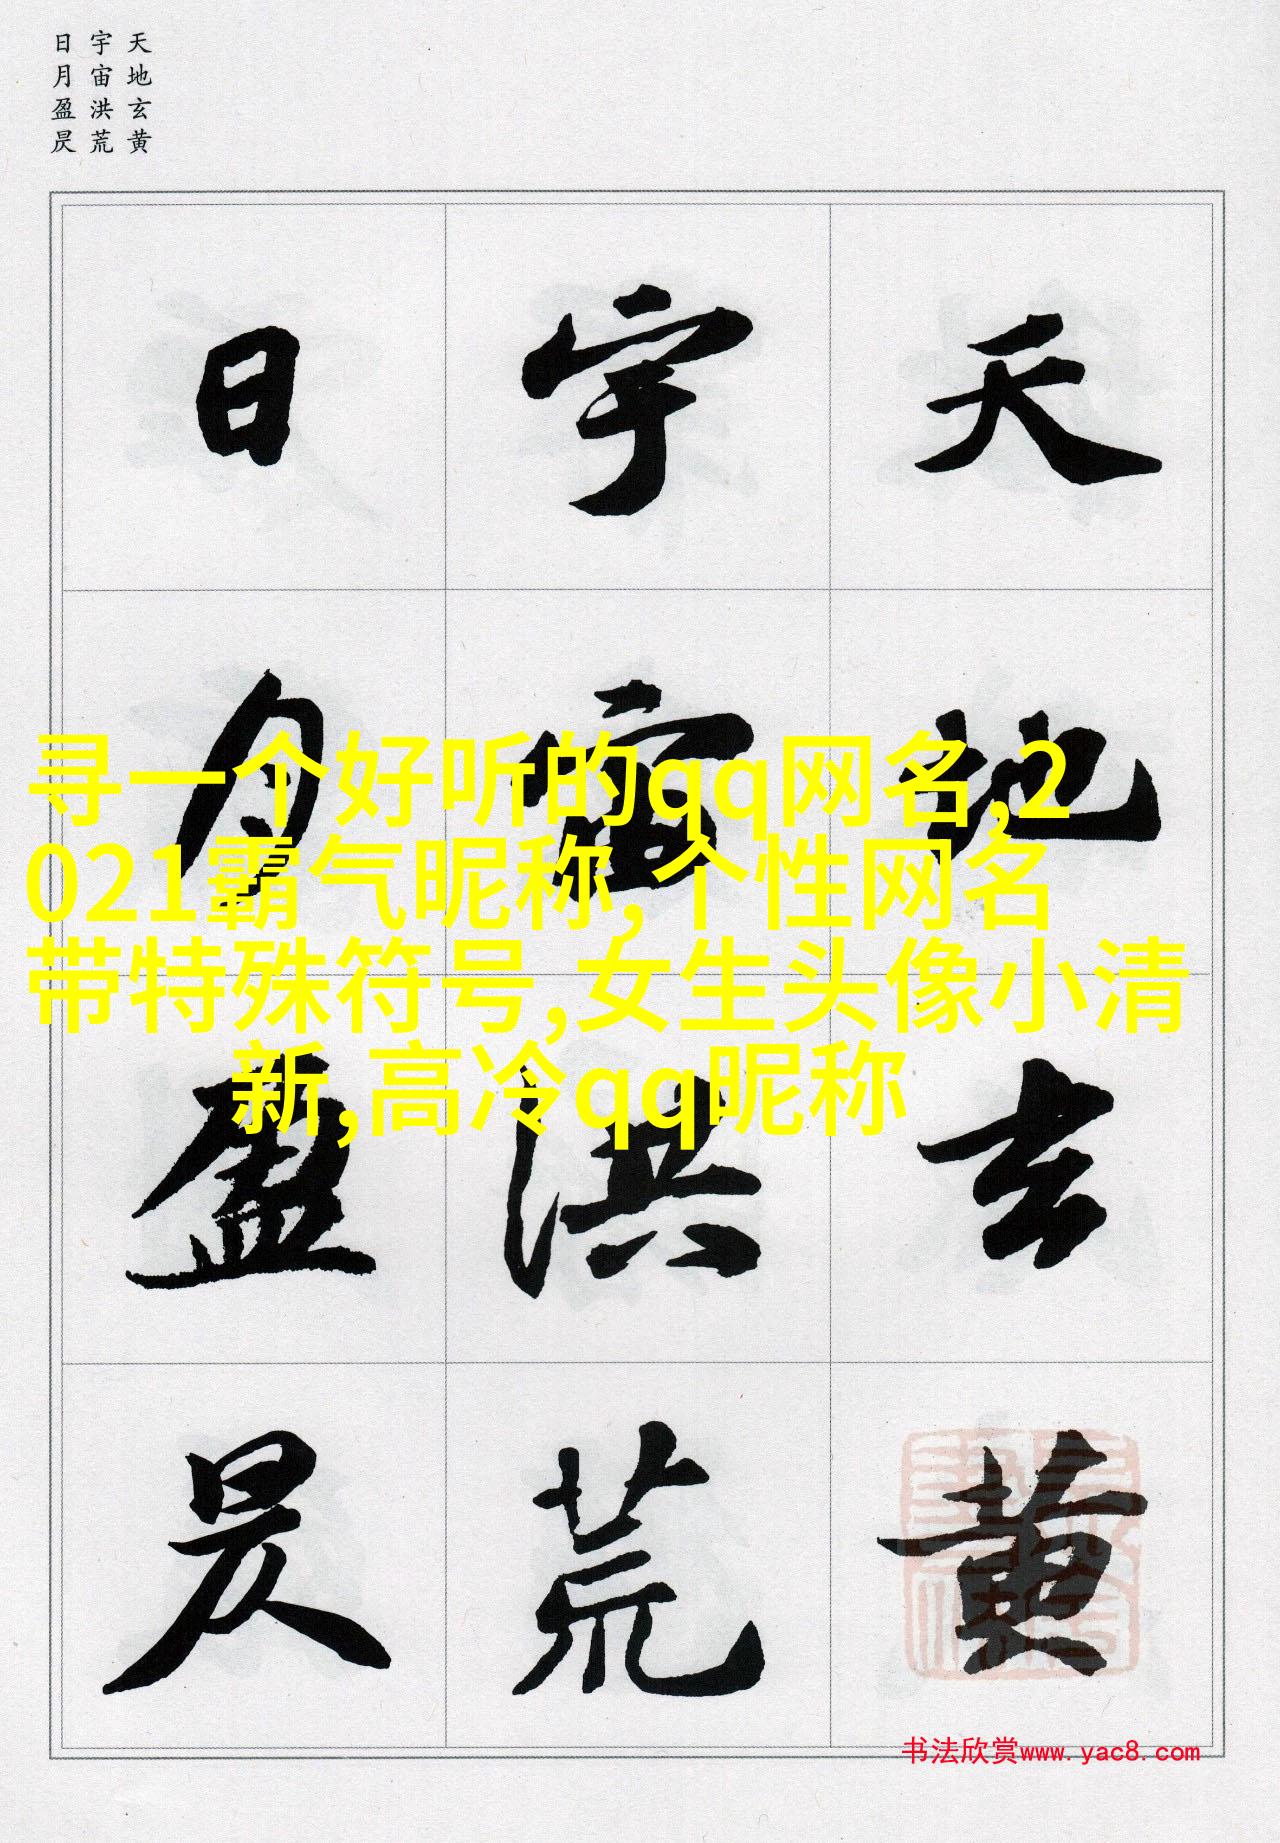 天地玄黄
宇宙洪荒
日月盈昃
天地玄黄
宇宙洪荒
日月盈昃
寻一个好听的qq网名,2
021霸气昵称,个性网名
带特殊符号,女生头像小清
新,高冷qq昵称
书法欣赏www.yac8.com